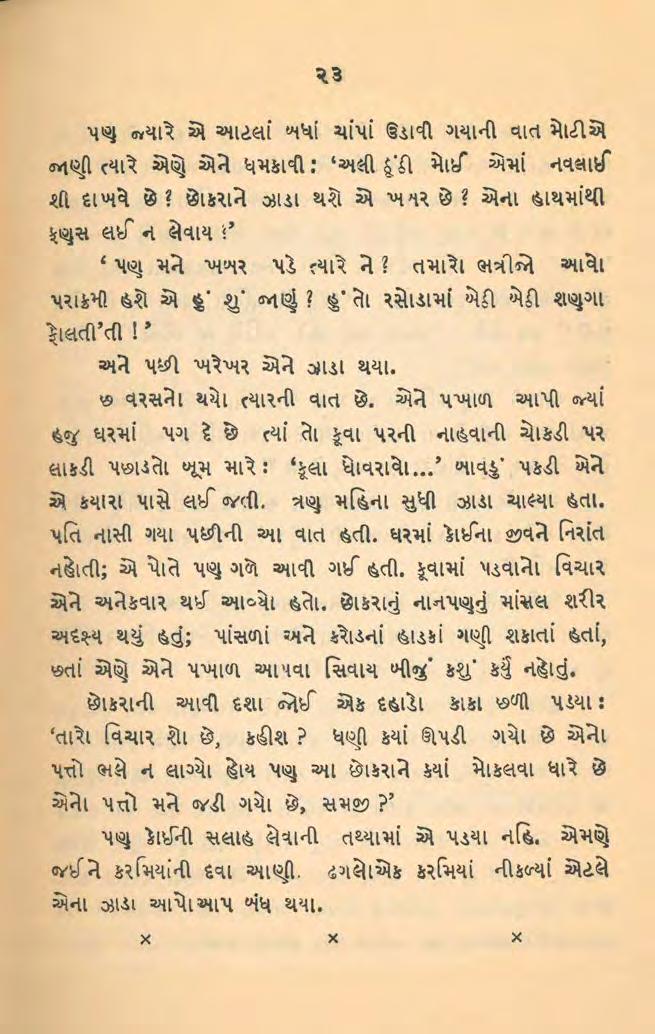 ૨૩
પણ જ્યારે એ આટલાં બધાં ચાંપાં ઉડાવી ગયાની વાત મોટીએ
જાણી ત્યારે એણે એને ધમકાવી : ‘અલી ઠૂંઠી મોઈ એમાં નવલાઈ
શી દાખવે છે ? છોકરાને ઝાડા થશે એ ખબર છે ? એના હાથમાંથી
ફણસ લઈ ન લેવાય ?’
‘ પણ મને ખબર પડે ત્યારે ને ? તમારો ભત્રીજો આવો
પરાક્રમી હશે એ હું શું જાણું ? હું તો રસોડામાં બેઠી બેઠી શણગા
ફોલતી’તી ! ’
અને પછી ખરેખર એને ઝાડા થયા.
છ વરસનો થયો ત્યારની વાત છે. એને પખાળ આપી જ્યાં
હજુ ઘરમાં પગ દે છે ત્યાં તો કૂવા પરની નાહવાની ચોકડી પર
લાકડી પછાડતો બૂમ મારે : ‘કૂલા ધોવરાવો...’ બાવડું પકડી એને
એ ક્યારા પાસે લઈ જતી. ત્રણ મહિના સુધી ઝાડા ચાલ્યા હતા.
પતિ નાસી ગયા પછીની આ વાત હતી. ઘરમાં કોઈના જીવને નિરાંત
નહોતી; એ પોતે પણ ગળે આવી ગઈ હતી. કૂવામાં પડવાનો વિચાર
એને અનેકવાર થઈ આવ્યો હતો. છોકરાનું નાનપણનું માંસલ શરીર
અદશ્ય થયું હતું; પાંસળાં અને કરોડનાં હાડકાં ગણી શકાતાં હતાં,
છતાં એણે એને પખાળ આપવા સિવાય બીજું કશું કર્યું નહોતું.
છોકરાની આવી દશા જોઈ એક દહાડો કાકા છળી પડયા :
‘તારો વિચાર શો છે, કહીશ ? ધણી કયાં ઊપડી ગયો છે એનો
પત્તો ભલે ન લાગ્યો હોય પણ આ છોકરાને કયાં મોકલવા ધારે છે
એનો પત્તો મને જડી ગયો છે, સમજી ?’
પણ કોઈની સલાહ લેવાની તથ્યામાં એ પડયા નહિ. એમણે
જઈને કરમિયાંની દવા આણી. ઢગલોએક કરમિયાં નીકળ્યાં એટલે
એના ઝાડા આપોઆપ બંધ થયા.
× × ×